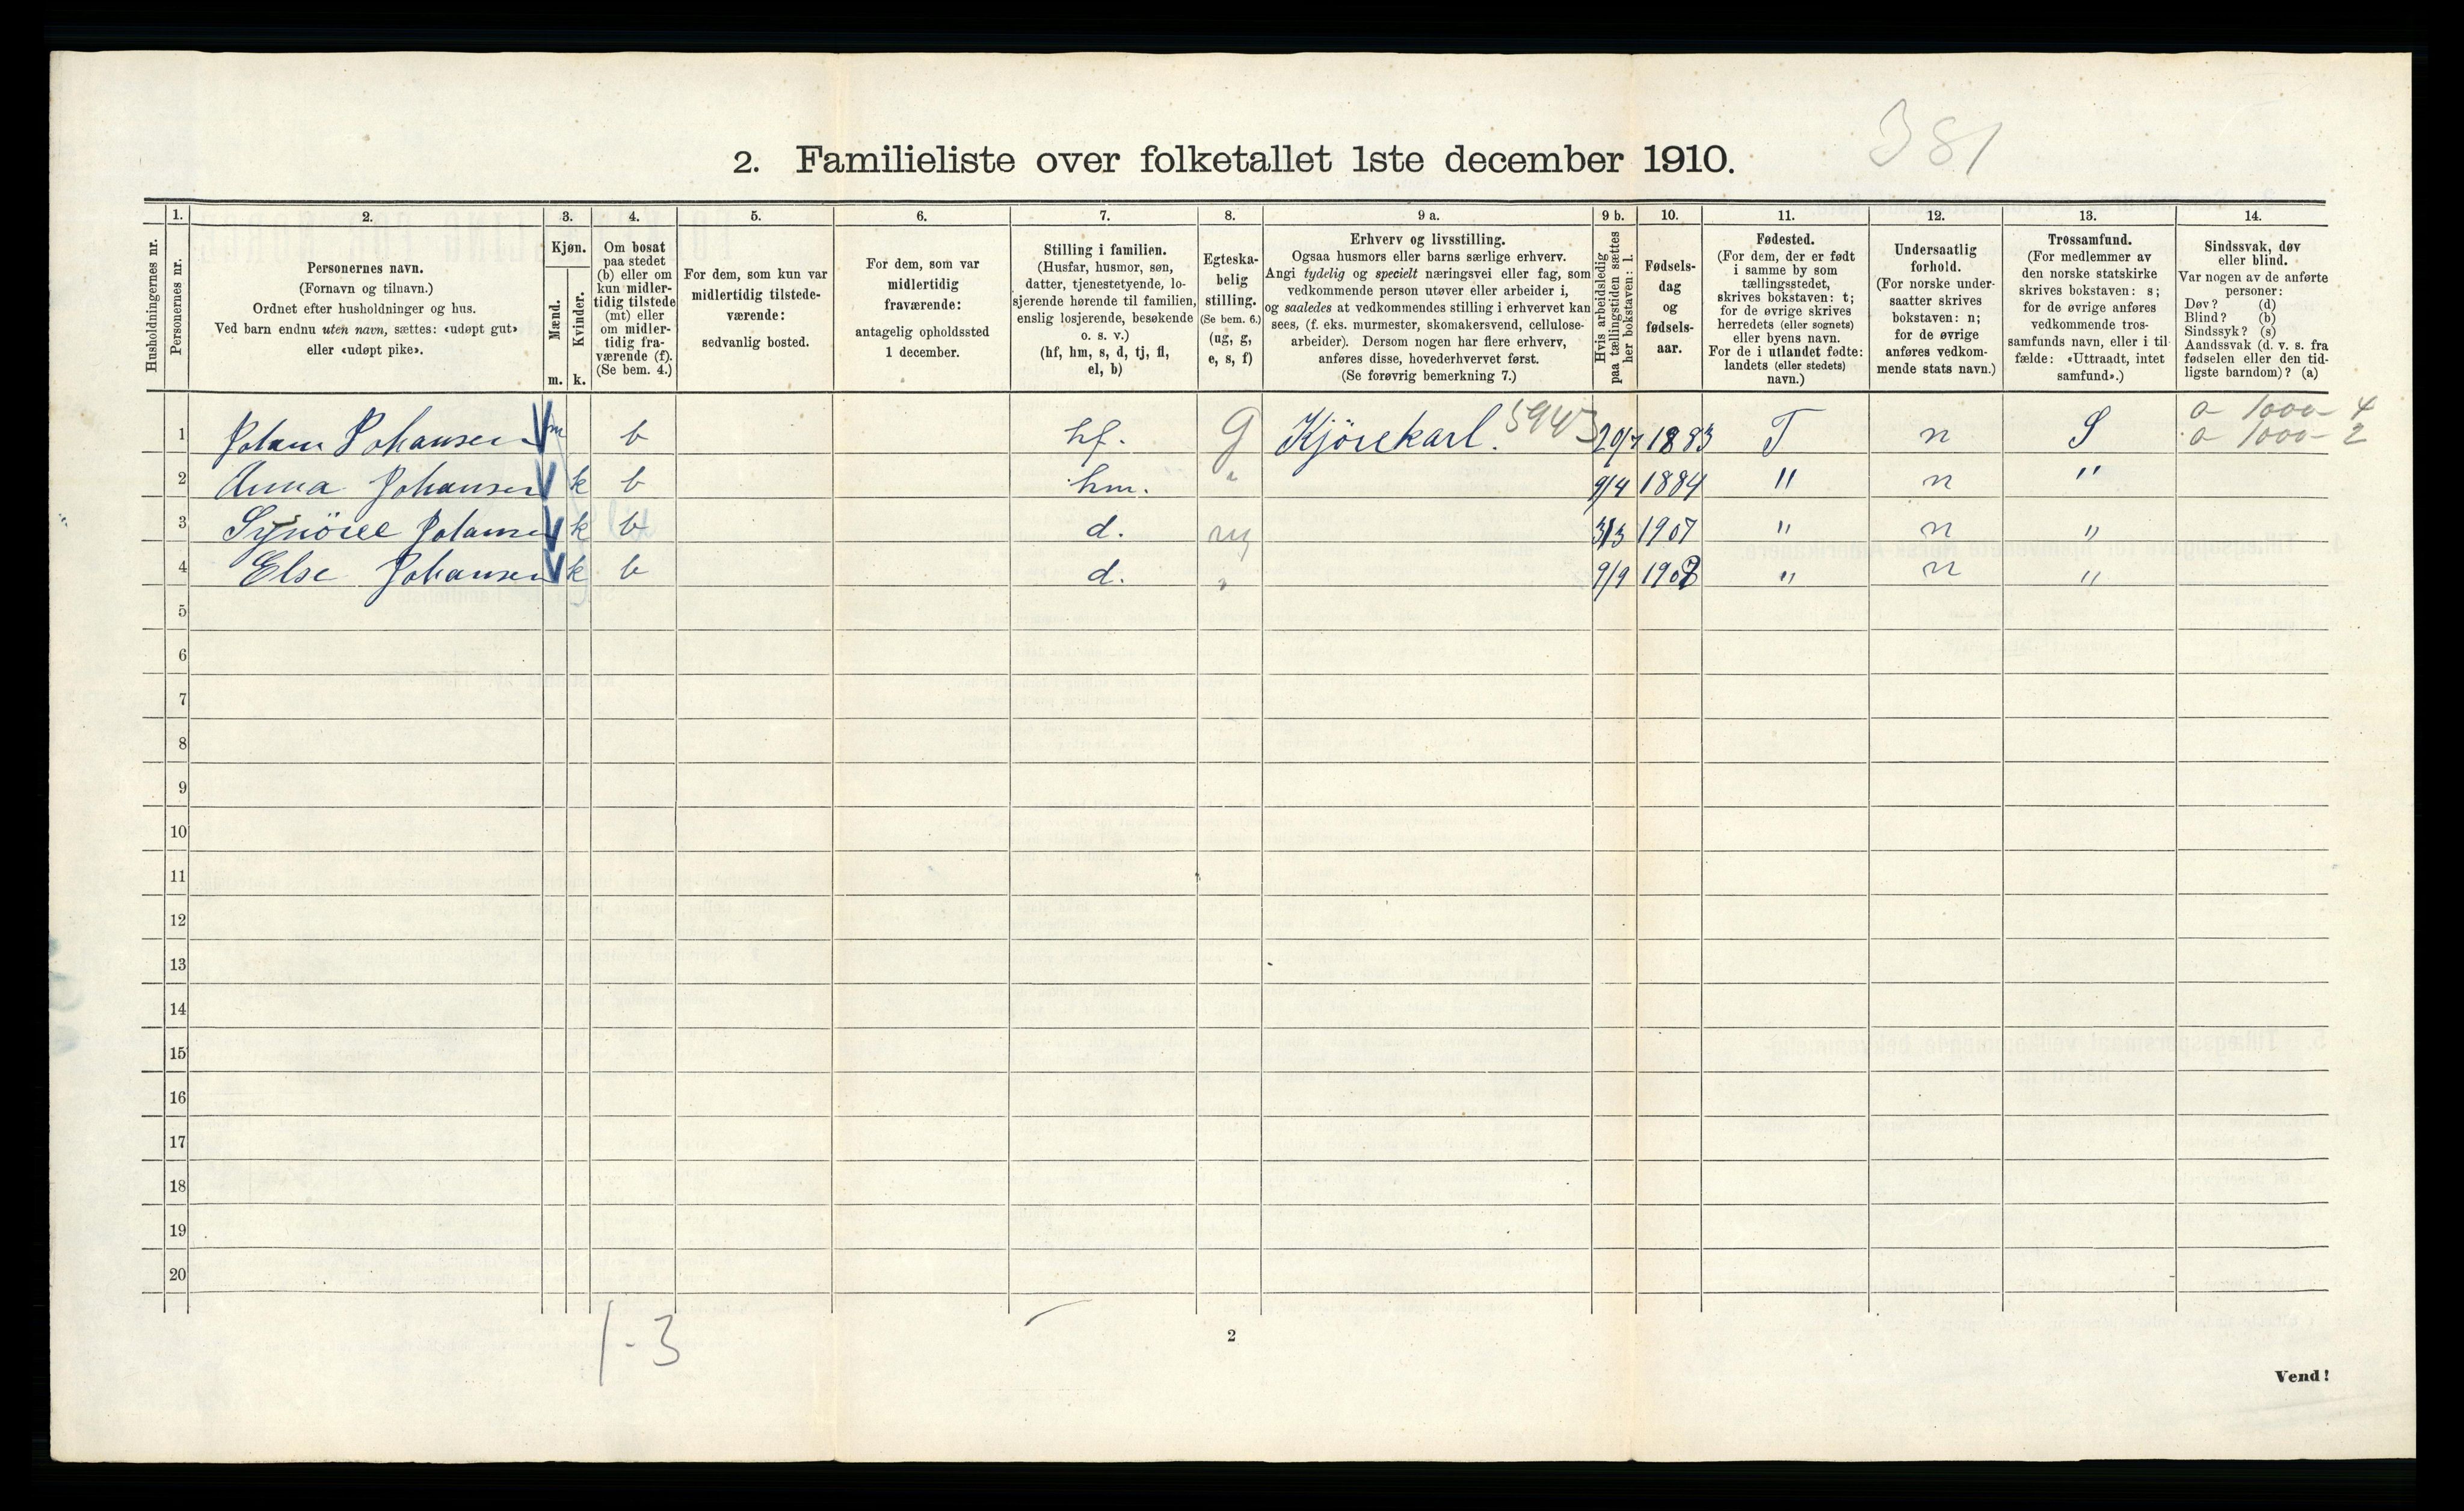 381
2. Familieliste over folketallet 1ste december 1910.
Husholdningernes nr.
1. Personernes nr.
2. Personernes navn.
(Fornavn og tilnavn.)
Ordnet efter husholdninger og hus.
Ved barn endnu uten navn, sættes: «udøpt gut»
eller «udøpt pike».
3. Kjøn.
Mænd. m.
Kvinder. k.
4. Om bosat
paa stedet
(b) eller om
kun midler-
tidig tilstede
(mt) eller
om midler-
tidig fra-
værende (f).
(Se bem. 4.)
5. For dem, som kun var
midlertidig tilstede-
værende:
sedvanlig bosted.
6. For dem, som var
midlertidig
fraværende:
antagelig opholdssted
1 december.
7. Stilling i familien.
(Husfar, husmor, søn,
datter, tjenestetyende, lo-
sjerende hørende til familien,
enslig losjerende, besøkende
o. s. v.)
(hf, hm, s, d, tj, fl,
el, b)
8. Egteska-
belig
stilling.
(Se bem. 6.)
(ug, g,
e, s, f)
9 a. Erhverv og livsstilling.
Ogsaa husmors eller barns særlige erhverv.
Angi tydelig og specielt næringsvei eller fag, som
vedkommende person utøver eller arbeider i,
og saaledes at vedkommendes stilling i erhvervet kan
sees, (f. eks. murmester, skomakersvend, cellulose-
arbeider). Dersom nogen har flere erhverv,
anføres disse, hovederhvervet først.
(Se forøvrig bemerkning 7.)
9 b. Hvis arbeidsledig
paa tællingstiden sættes
her bokstaven: l.
10. Fødsels-
dag
og
fødsels-
aar.
11. Fødested.
(For dem, der er født
i samme by som
tællingsstedet,
skrives bokstaven: t;
for de øvrige skrives
herredets (eller sognets)
eller byens navn.
For de i utlandet fødte:
landets (eller stedets)
navn.)
12. Undersaatlig
forhold.
(For norske under-
saatter skrives
bokstaven: n;
for de øvrige
anføres vedkom-
mende stats navn.)
13. Trossamfund.
(For medlemmer av
den norske statskirke
skrives bokstaven: s;
for de øvrige anføres
vedkommende tros-
samfunds navn, eller i til-
fælde: «Uttraadt, intet
samfund».)
14. Sindssvak, døv
eller blind.
Var nogen av de anførte
personer:
Døv? (d)
Blind? (b)
Sindssyk? (s)
Aandssvak (d. v. s. fra
fødselen eller den tid-
ligste barndom)? (a)
1 Johan Johansen m b hf. g Kjørekarl. 5943 29/7 1883 T n S 0 1000 - 4
0 1000 - 2
2 Anna Johansen k b hm. " 9/4 1884 " n "
3 Synöve Johansen k b d. ug 31/3 1907 " n "
4 Else Johansen k b d. " 9/9 " n "
5
6
7
8
9
10
11
12
13
14
15
16
17
18
19
20
1-3
2
Vend!